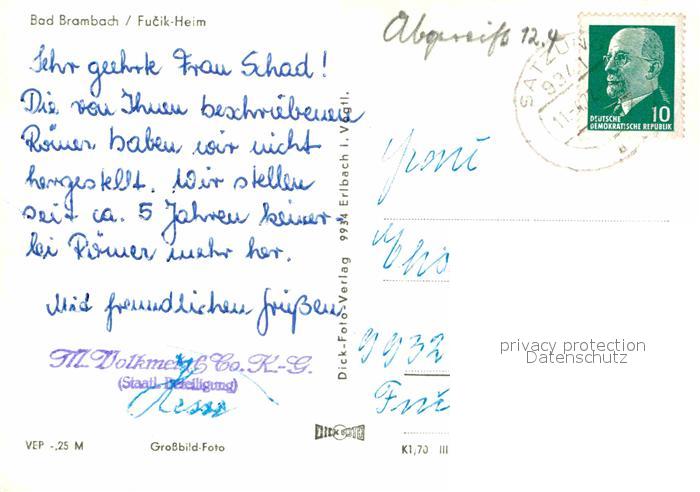 Bad Brambach / Fučik-Heim
Sehr geehrte Frau Schad!
Die von Ihnen beschriebenen
Römer haben wir nicht
hergestellt. Wir stellen
seit ca. 5 Jahren keiner-
lei Römer mehr her.
Mit freundlichen Grüßen
M. Volkmer & Co. K.-G.
(Staatl. Beteiligung)
VEP -,25 M
Großbild-Foto
Dick-Foto-Verlag 9934 Erlbach i. Vogtl.
DICK
K1,70 III
12.4
SATZUNG
937
DEUTSCHE
DEMOKRATISCHE REPUBLIK
10
Frau
9932
privacy protection
Datenschutz